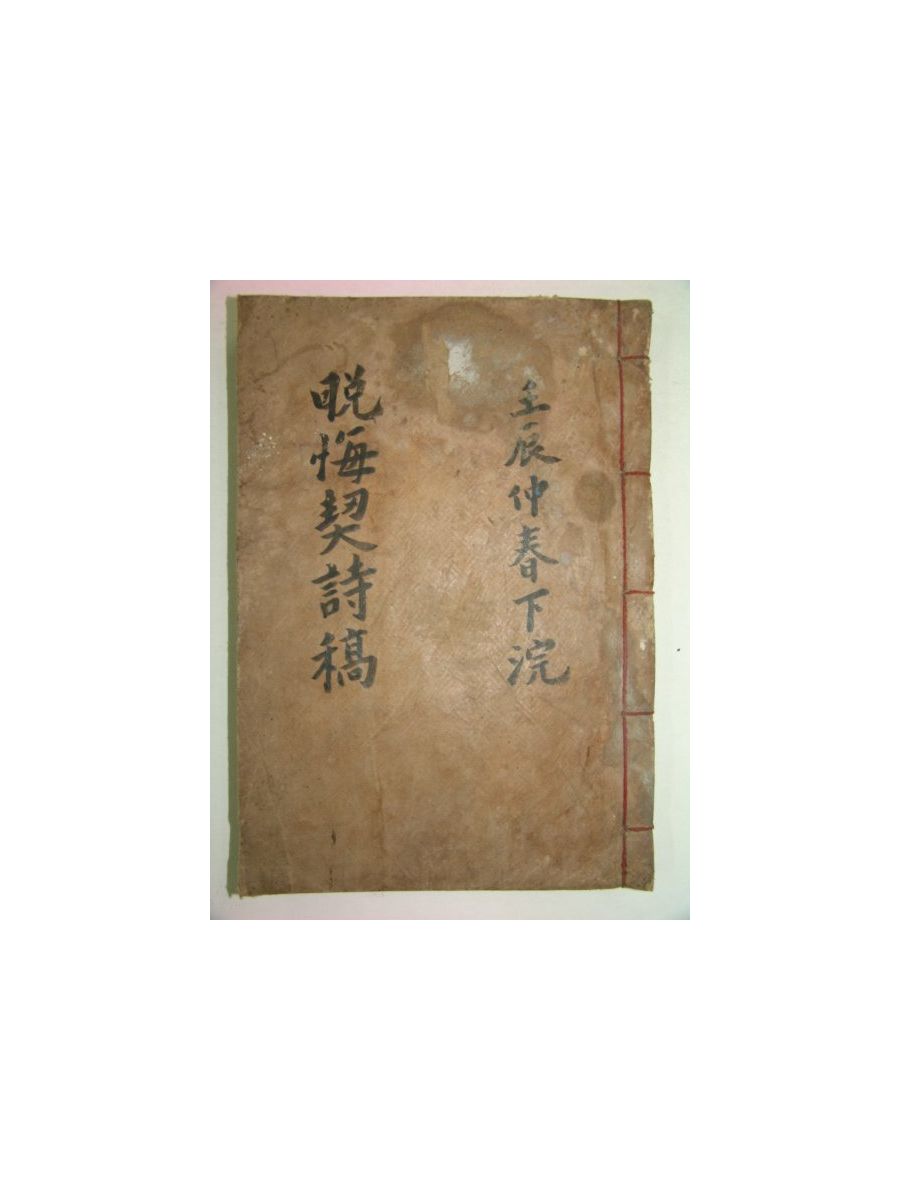 壬辰仲春下浣
晩悔契詩稿